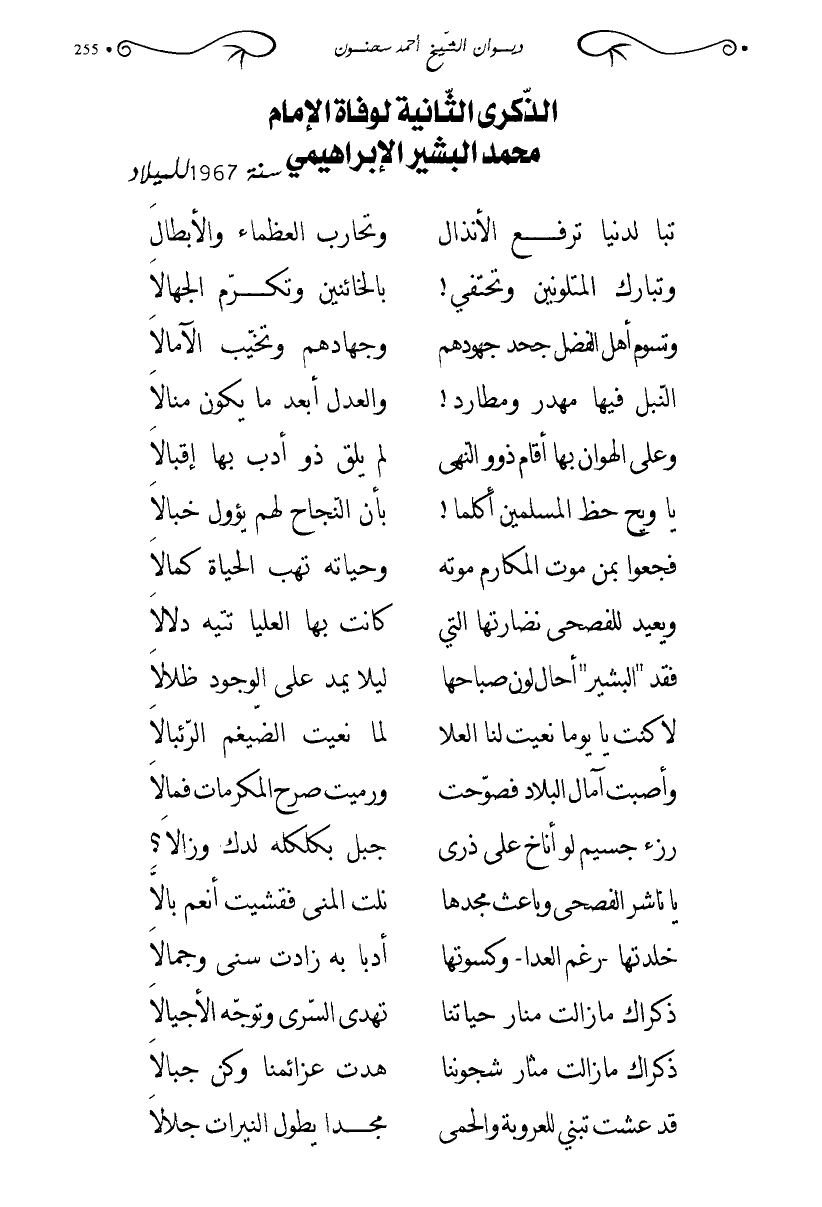 ديوان الشّيخ أحمد سحنون 255
الذّكرى الثّانية لوفاة الإمام
محمد البشير الإبراهيمي سنة 1967 للميلاد
تبا لدنيا ترفع الأنذال وتحارب العظماء والأبطالَ
وتبارك المتلونين وتحتفي! بالخائنين وتكرّم الجهالاَ
وتسوم أهل الفضل جحد جهودهم وجهادهم وتخيّب الآمالاَ
النّبل فيها مهدر ومطارد! والعدل أبعد ما يكون منالاَ
وعلى الهوان بها أقام ذوو النّهى لم يلق ذو أدب بها إقبالاَ
يا ويح حظ المسلمين أكلما! بأن النّجاح لهم يؤول خبالاَ
فجعوا بمن موت المكارم موته وحياته تهب الحياة كمالاَ
ويعيد للفصحى نضارتها التي كانت بها العليا تتيه دلالاَ
فقد "البشير" أحال لون صباحها ليلا يمد على الوجود ظلالاَ
لا كنت يا يوما نعيت لنا العلا لما نعيت الضّيغم الرّئبالاَ
وأصبت آمال البلاد فصوّحت ورميت صرح المكرمات فمالاَ
رزء جسيم لو أناخ على ذرى جبل بكلكله لدك وزالاَ؟
يا ناشر الفصحى وباعث مجدها نلت المنى فقشيت أنعم بالاَ
خلدتها -رغم العدا- وكسوتها أدبا به زادت سنى وجمالاَ
ذكراك مازالت منار حياتنا تهدى السّرى وتوجّه الأجيالاَ
ذكراك مازالت مثار شجوننا هدت عزائمنا وكن جبالاَ
قد عشت تبني للعروبة والحمى مجدا يطول النيرات جلالاَ